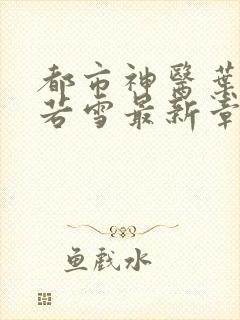 都市神醫葉
若雪最新章
鱼戲水